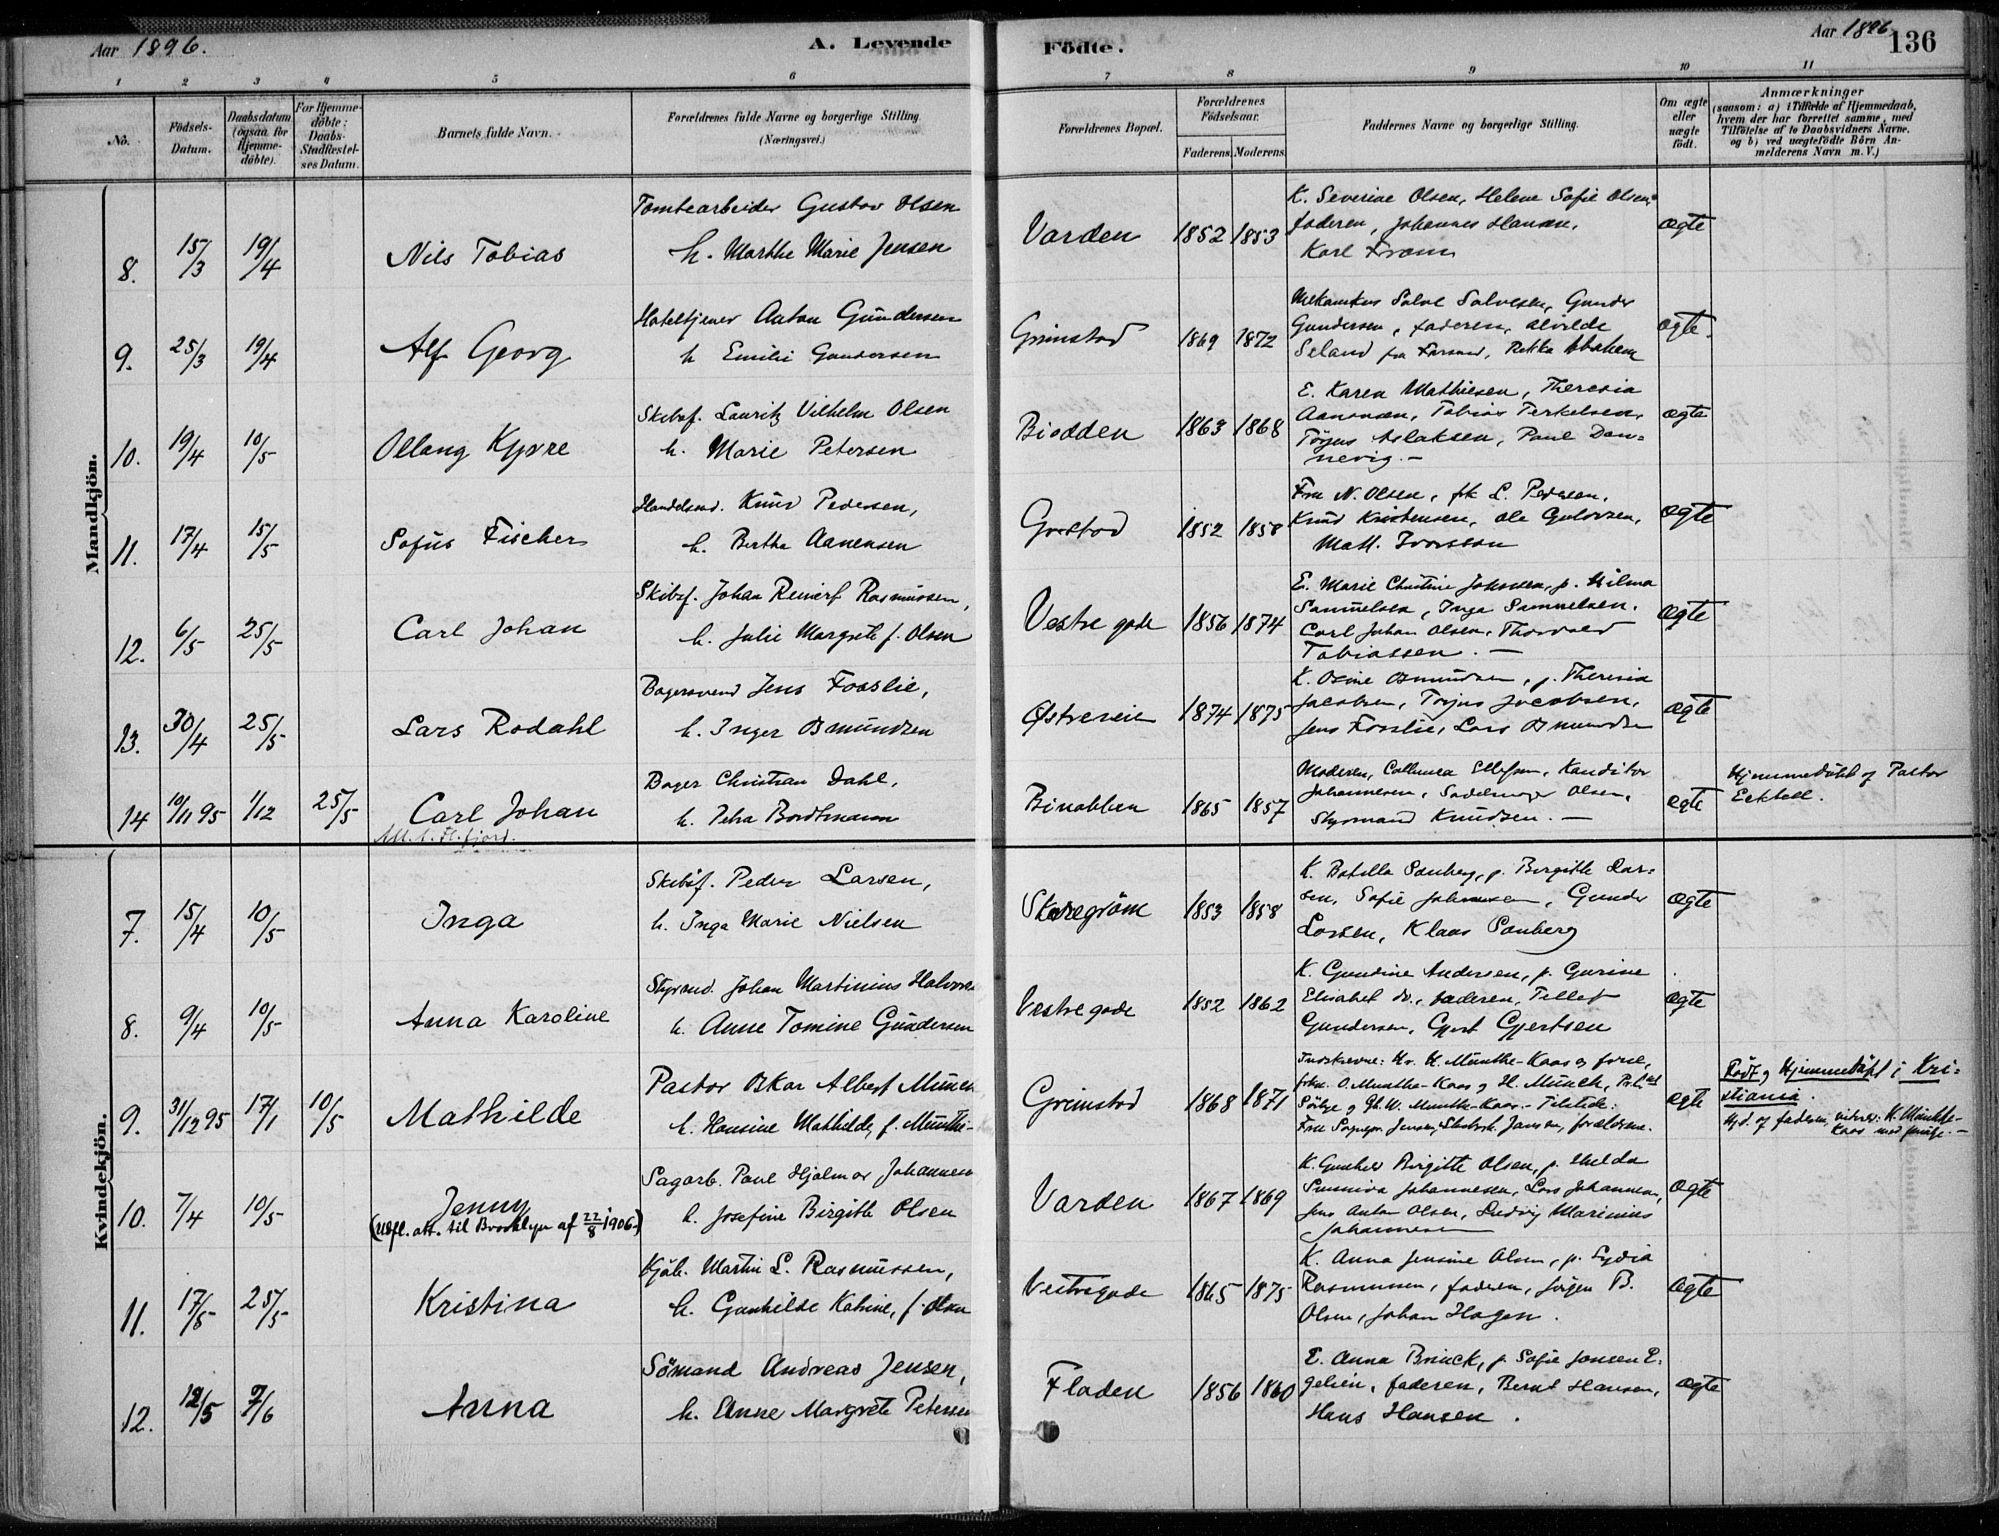 Aar 1896.
A. Levende Födte.
Aar 1896
136
1 2 3 4 5 6 7 8 9 10 11
No.
Födsels-Datum.
Daabsdatum (ogsaa for Hjemmedöbte).
For Hjemmedöbte: Daabs-Stadfæstelses Datum.
Barnets fulde Navn.
Forældrenes fulde Navne og borgerlige Stilling.
(Næringsvei.)
Forældrenes Bopæl.
Forældrenes Födselsaar.
Faderens. Moderens.
Faddernes Navne og borgerlige Stilling.
Om ægte eller uægte födt.
Anmærkninger
(saasom: a) i Tilfælde af Hjemmedaab,
hvem der har forrettet samme, med
Tilföielse af to Daabsvidners Navne.
og b) ved uægtefödte Börn An-
melderens Navn m.V.)
Mandkjön.
8. 15/3 19/4 Nils Tobias
Tomtearbeider Gustav Olsen
h. Marthe Marie Jensen
Varden 1852 1853
K. Severine Olsen, Helene Sofie Olsen,
faderen, Johannes Hansen,
Karl Fram
ægte
9. 25/3 19/4 Alf Georg
Hoteltjener Anton Gundersen
h. Emilie Gundersen
Grimstad 1869 1872
Mekanikus Salve Salvesen, Gunder
Gundersen, faderen, Alvilde
Seland fra Farsund, Rekka Abraham
ægte.
10. 19/4 10/5
Skibsf. Lauritz Vilhelm Olsen
h. Marie Petersen
Biodden 1863 1868
E. Karen Mathiesen, Theresia
Aanonsen, Tobias Terkelsen,
Tørjus Aslaksen, Paul Dan-
nevig. —
ægte
11. 17/4 15/5 Sofus Fischer
Handelsmd. Knud Pedersen,
h. Berthe Aanensen
Grostad 1852 1858
Fru N. Olsen, frk L. Pedersen,
Knud Kristensen, Ole
Math. Ivarsson
ægte
12. 6/5 25/5 Carl Johan
Skibsf. Johan Reinert Rasmussen,
h. Julie Margrete f. Olsen
Vestre gade 1856 1874
E. Marie Christine Johnsen, p. Hilma
Samuelsen, Inga Samuelsen,
Carl Johan Olsen, Thorvald
Tobiassen. —
ægte
13. 30/4 25/5 Lars Rodahl
Bagersvend Jens Fosslie,
h. Inger Osmundsen
Østreveien 1874 1875
K. Osine Osmundsen, p. Theresia
Jacobsen, Tørjus Jacobsen,
Jens Fosslie, Lars Osmundsen
ægte
14 10/11 95 1/12 25/5 Carl Johan
Bager Christian Dahl,
h. Petra Bordtmann
Binabben 1865 1857
Moderen, Ellefsen, Konditor
Johannesen, Sadelmager Olsen,
Styrmand Knudsen. —
ægte
Hjemmedøbt af Pastor
Eckhell.
Kvindekjön.
7. 15/4 10/5 Inga
Skibsf. Peder Larsen,
h. Inga Marie Nielsen
Skaregrøm 1853 1858
K. Botille Sonberg, p. Birgitte Lar-
sen, Sofie Johannesen, Gunder
Larsen, Klaas Sonberg
ægte
8. 9/4 10/5 Anna Karoline
Styrmd. Johan Martinius Halvorsen
h. Anne Tomine Gundersen
Vestre gade 1852 1862
K. Gundine Andersen, p. Gurine
Elisabet do., faderen, Tellef
Gundersen, Gjert Gjertsen
ægte
9. 31/12 95 17/1 10/5 Mathilde
Pastor Oskar Albert Münch
h. Hansine Mathilde, f. Munthe-
Grimstad 1868 1871
Indskrevne: Hr. H. Munthe-Kaas og frue,
frkn. O. Munthe-Kaas og H. Münch,
og Chr. W. Munthe-Kaas. Tilstede:
Fru Sogpr. Jensen, Jansen, forældrene.
ægte
Født og Hjemmedøbt i Kri-
stiania.
Hjd. af faderen, vidner: K. Munthe-
Kaas med frue. —
10. 7/4 10/5 Jenny
(Udfl. att. til Brooklyn af 22/8 1906.)
Sagarb. Paul Hjalmar Johannesen
h. Josefine Birgitte Olsen
Varden 1867 1869
K. Gunhild Birgitte Olsen, p. Hulda
Sunniva Johannesen, Lars Johannesen,
Jens Anton Olsen, Ludvig Marinius
Johannesen
ægte
11. 17/5 25/5 Kristina
Kjøb. Martin L. Rasmussen,
h. Gunhilde Katrine, f. Olsen
Vestregade 1865 1875
K. Anna Jensine Olsen, p. Lydia
Rasmussen, faderen, Jørgen B.
Olsen, Johan Hagen.
ægte
12. 12/5 7/6 Anna
Sömand Andreas Jensen,
h. Anne Margrete Petersen
Fladen 1856 1860
E. Anna Brinck, p. Sofie Jonsen E-
gelien, faderen, Bernt Hansen,
Hans Hansen.
ægte